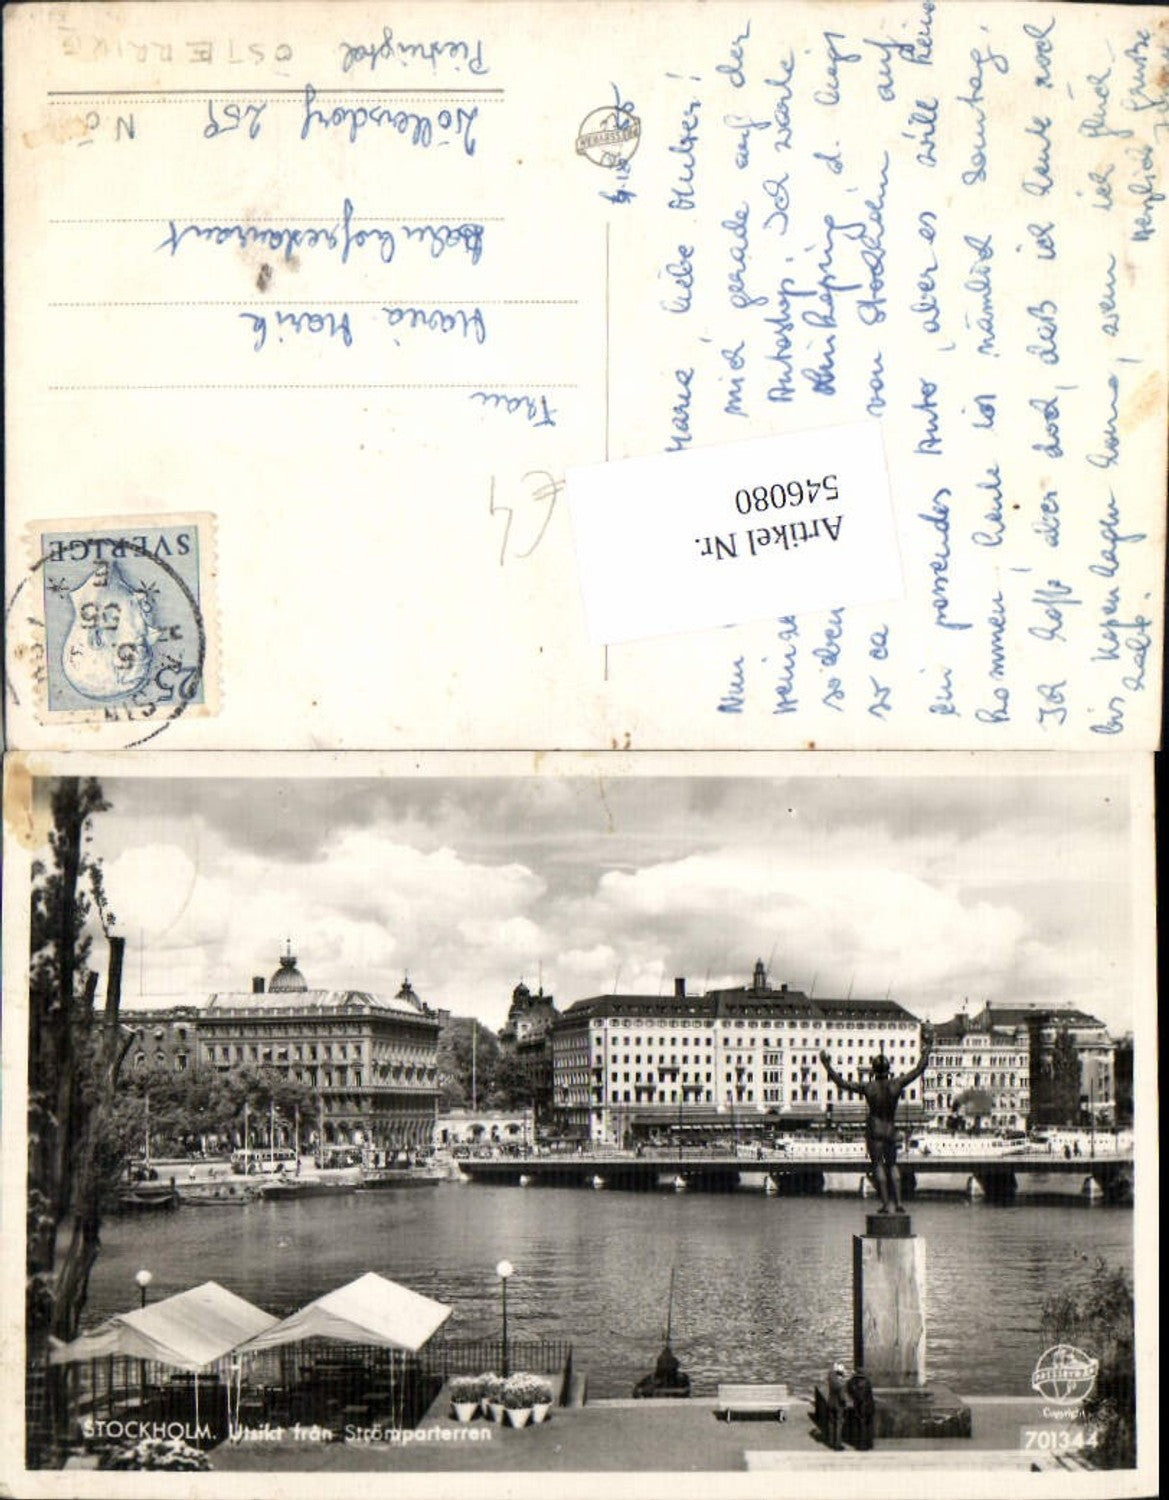 ÖSTERRIKE
Piestingtal
Wöllersdorf 259 NÖ
Bahnhofrestaurant
Maria Marik
Frau
€4
SVERIGE
25
Artikel Nr.
546080
Maria, liebe Mutter!
Nun mich gerade auf der
Autostop. Ich warte
soeben Linköping d. liegt
so ca von Stockholm auf
ein passendes Auto, aber es will kein
kommen, heute ist nämlich Sonntag.
Ich hoffe aber doch, daß ich heute noch
bis Kopenhagen komme, wenn ich Glück
habe. Herzlich Grüße
STOCKHOLM. Utsikt från Strömparterren
PRESSBYRÅN
Copyright
701344